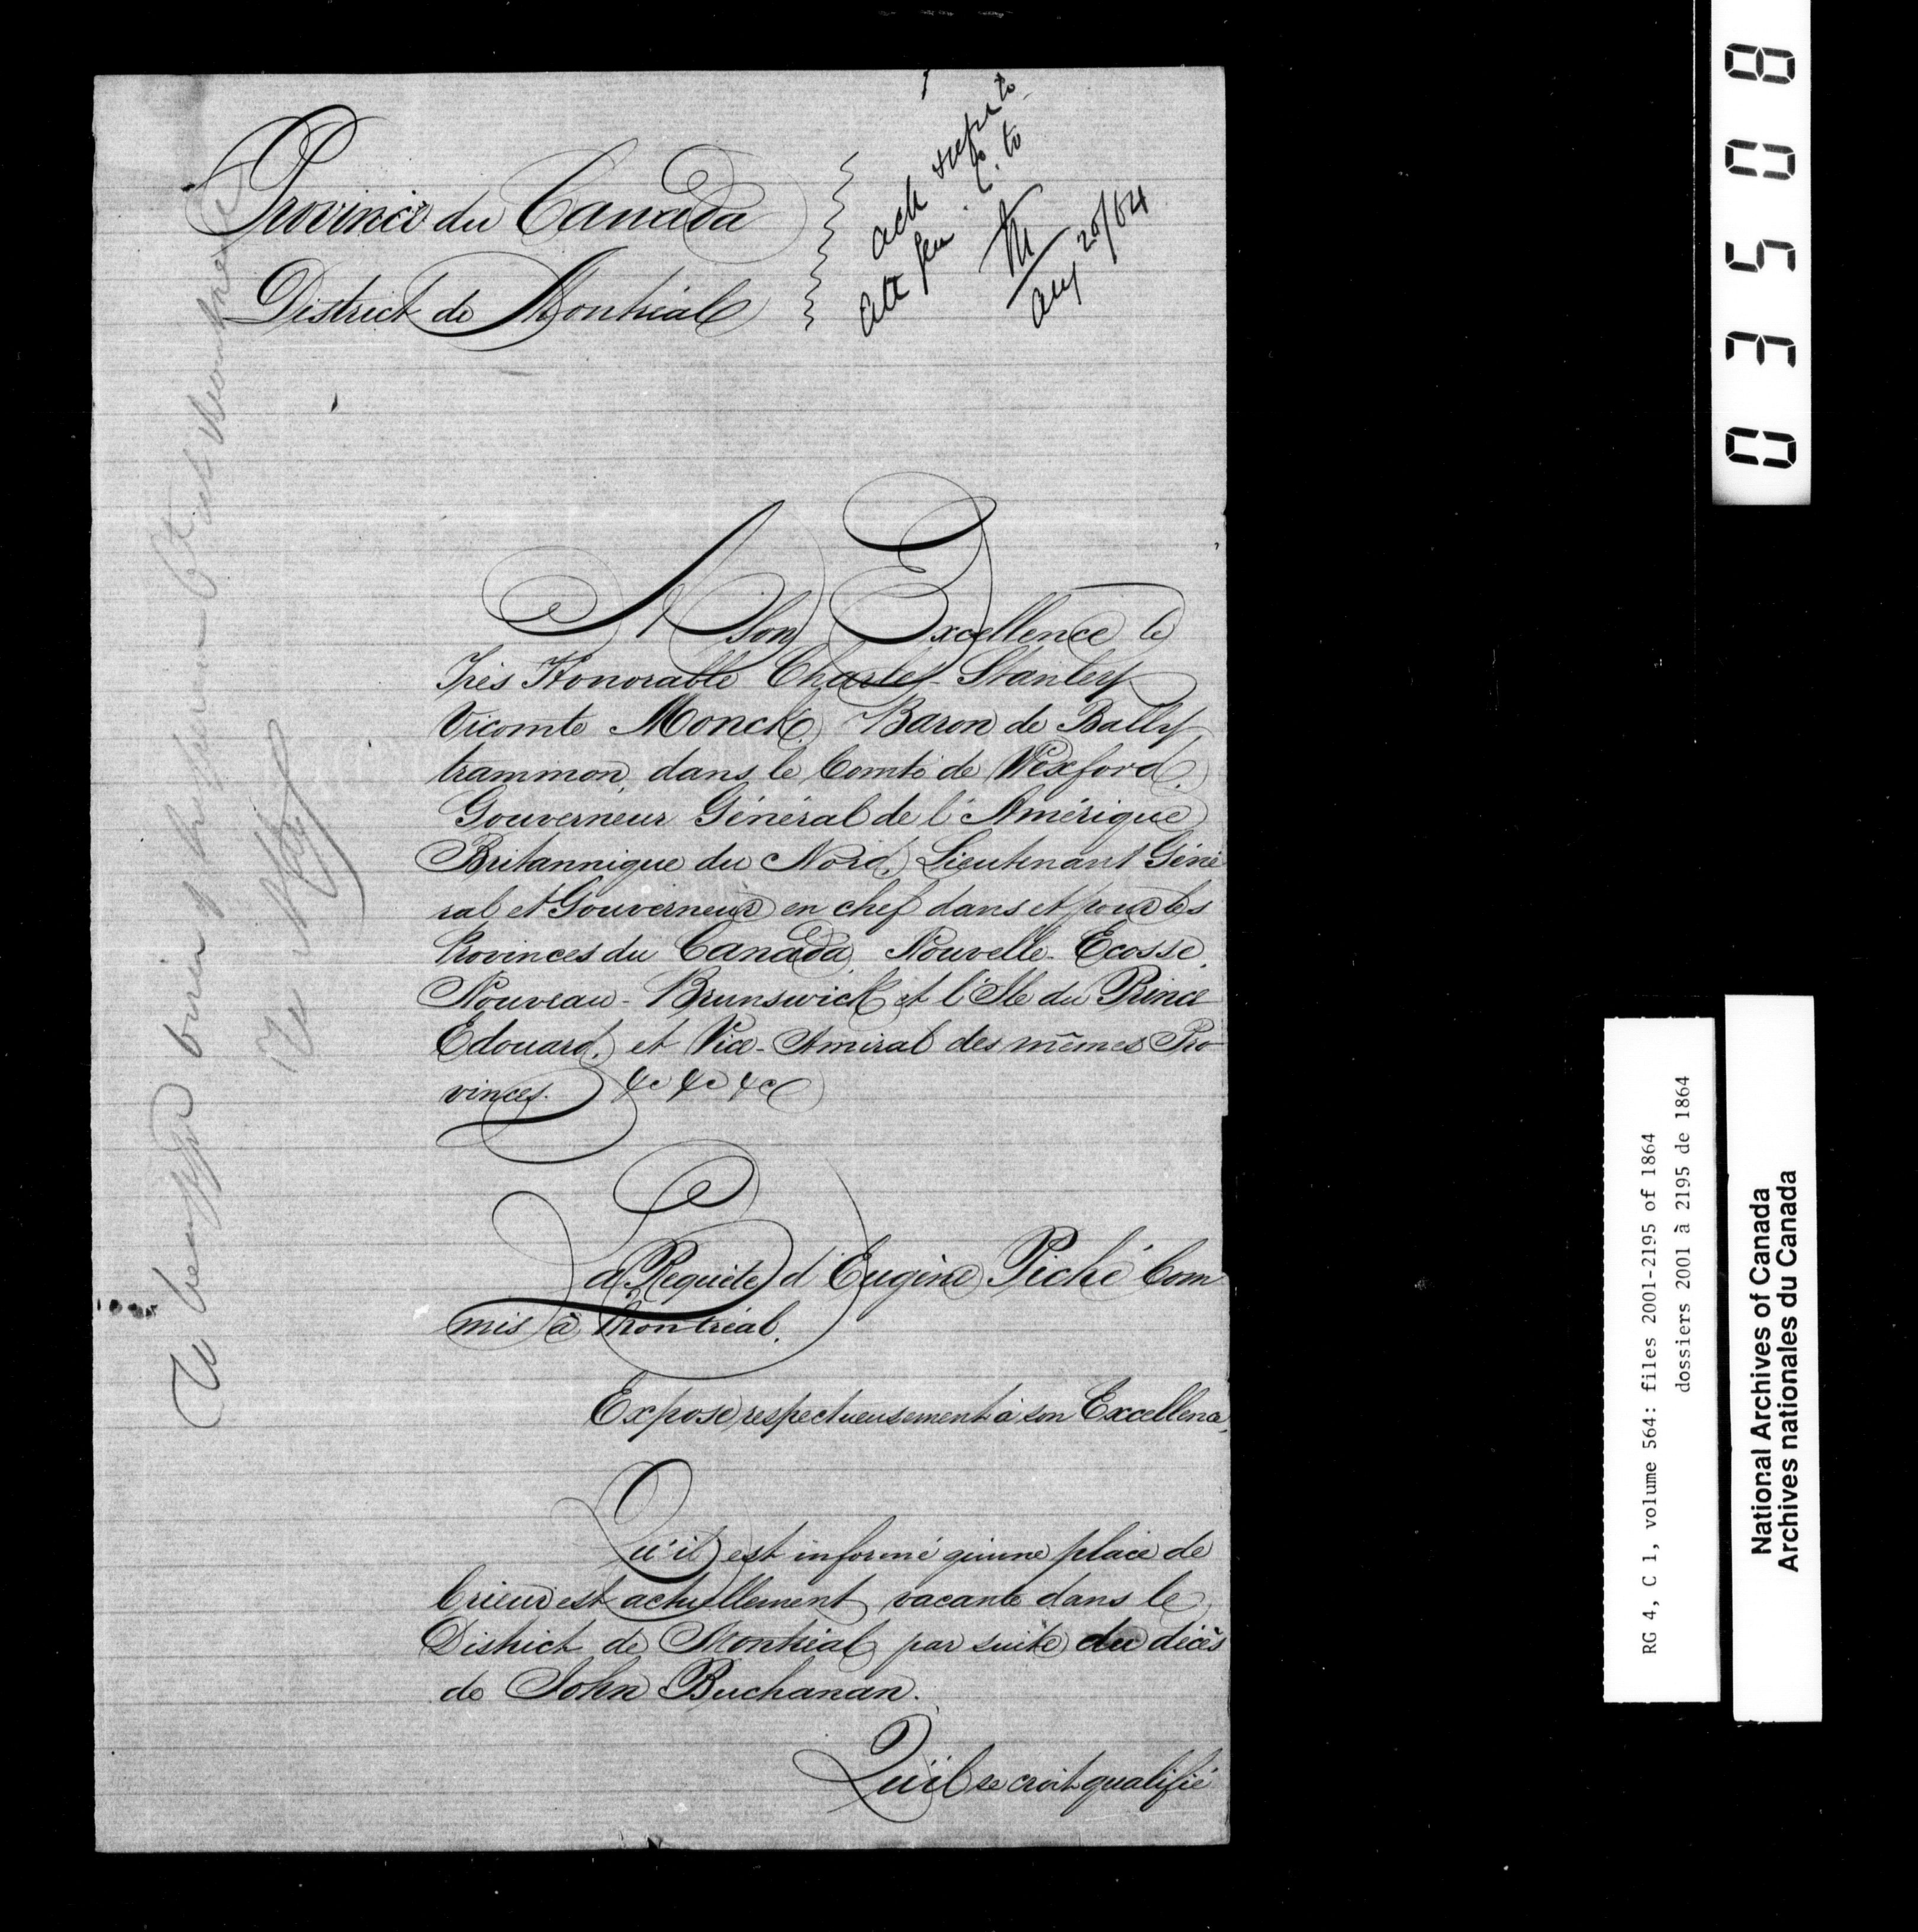 Province du Canada
District de Montréal
ack
Aug 20/64
A Son Excellence le
Très Honorable Charles Stanley
Vicomte Monck, Baron de Bally
trammon, dans le Comté de Wexford,
Gouverneur Général de l'Amérique
Britannique du Nord, Lieutenant Géné
ral et Gouverneur en chef dans et pour les
Provinces du Canada, Nouvelle-Ecosse,
Nouveau-Brunswick et l'Ile du Prince
Edouard, et Vice-Amiral des mêmes Pro
vinces. &c &c &c
La Requête d'Eugène Piché Com
mis à Montréal.
Expose respectueusement à son Excellence,
Qu'il est informé qu'une place de
Crieur est actuellement vacante dans le
District de Montréal par suite du décès
de John Buchanan.
Qu'il se croit qualifié
03508
RG 4, C 1, volume 564: files 2001-2195 of 1864
dossiers 2001 à 2195 de 1864
National Archives of Canada
Archives nationales du Canada